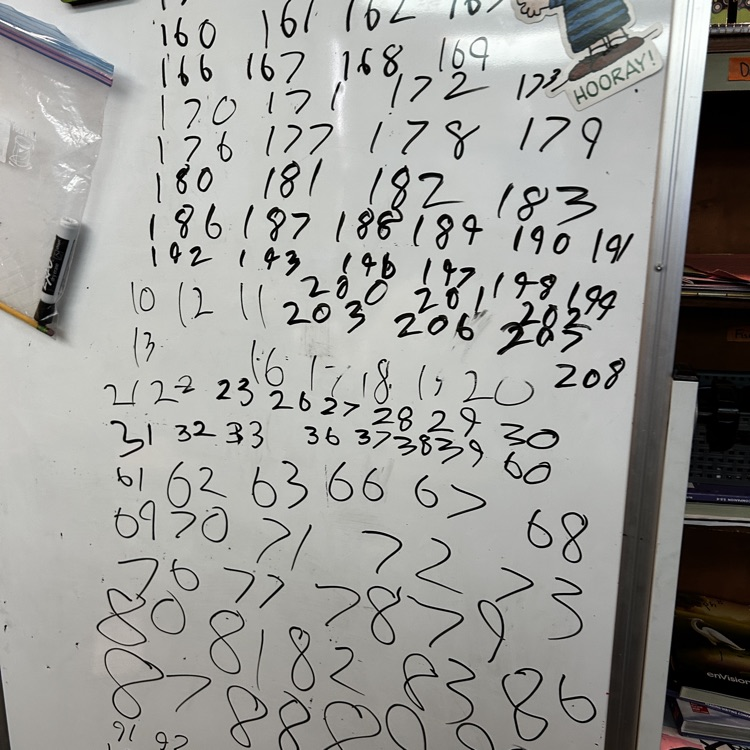 160 161 162
166 167 168 169
HOORAY!
170 171 172 173
176 177 178 179
180 181 182 183
186 187 188 189 190 191
192 193 196 197 198 199
10 12 11 200 201 202
203 206 205
13
16 17 18 19 20 208
21 22 23 26 27 28 29
31 32 33 36 37 38 39 30
60
61 62 63 66 67 68
69 70 71 72 73
76 77 78 79
80 81 82 83 86
87 88
91